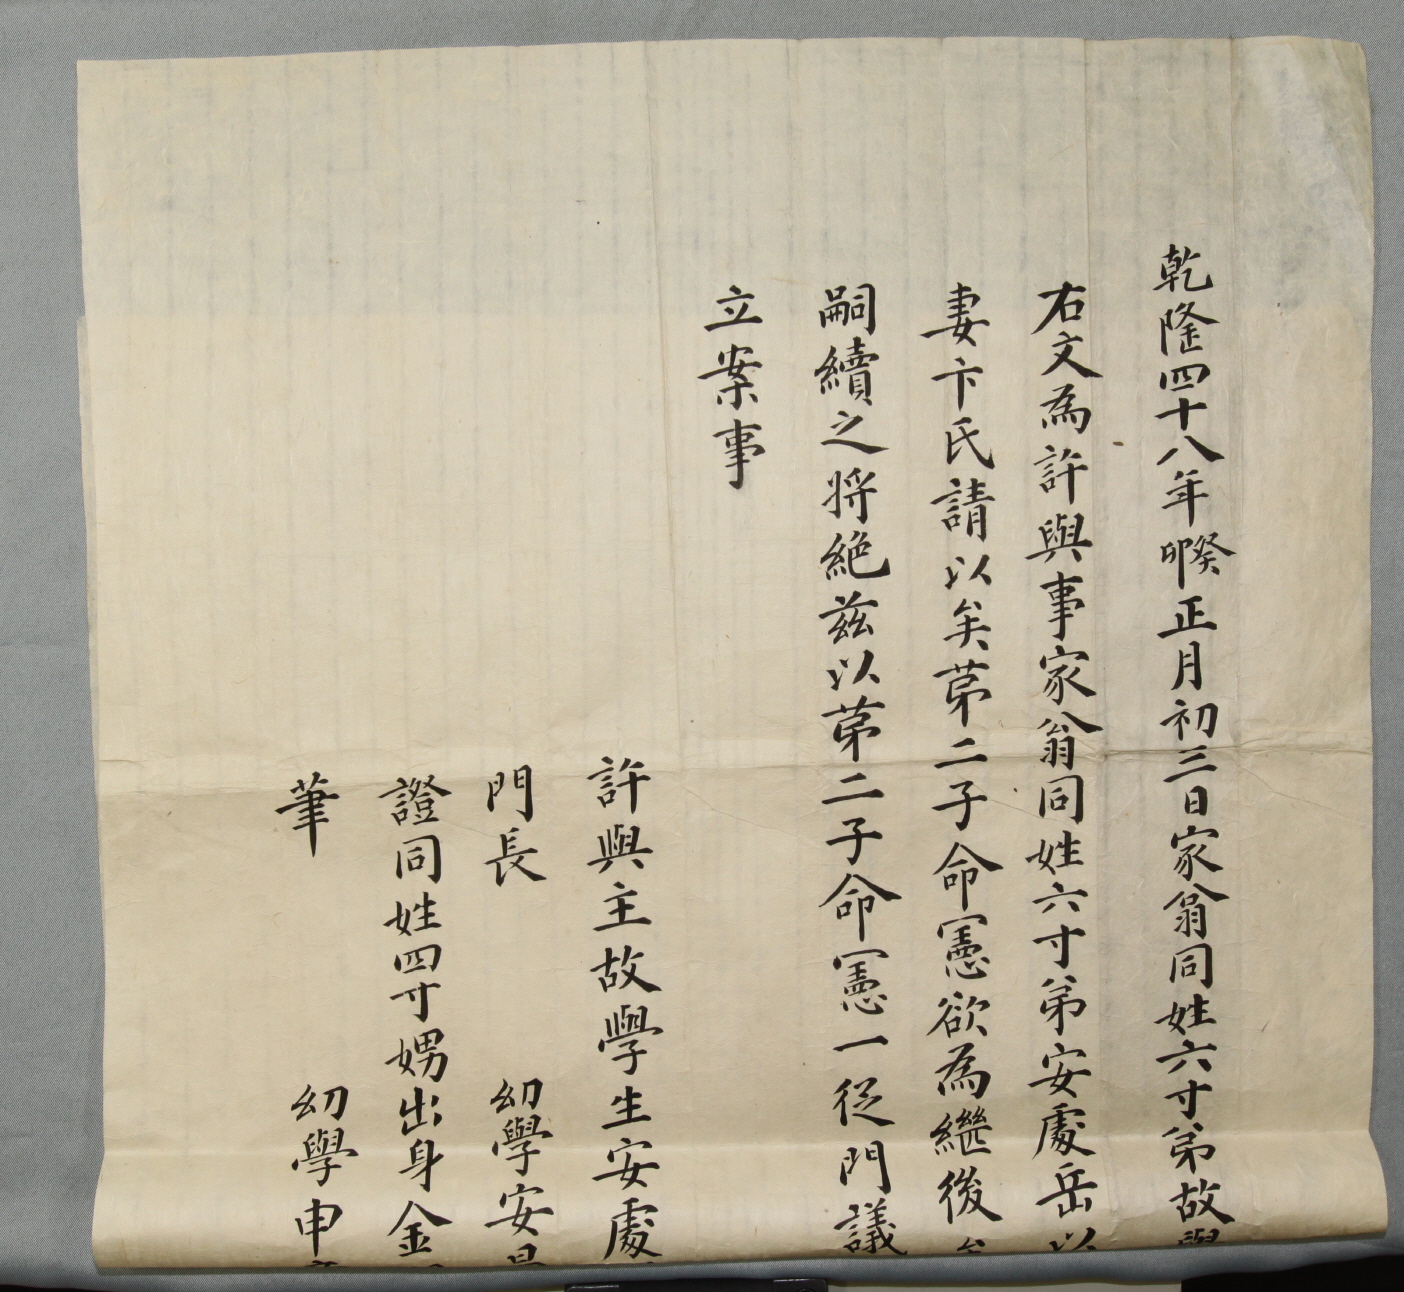 乾隆四十八年癸卯正月初三日家翁同姓六寸弟故學
右文為許與事家翁同姓六寸弟安處岳以
妻卞氏請以矣苐二子命憲欲為繼後矣
嗣續之将絶玆以苐二子命憲一從門議
立案事
許與主故學生安處
門長 幼學安
證同姓四寸娚出身金
筆 幼學申